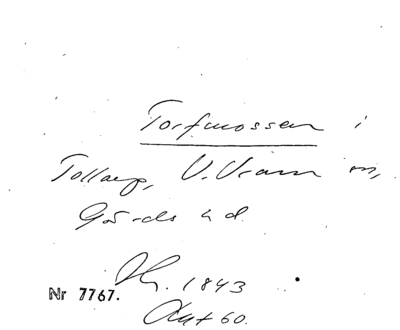 Torfmossen i
Tollarp, V. Vram sn,
Gärds hd.
1843
Nr 7767.
60.